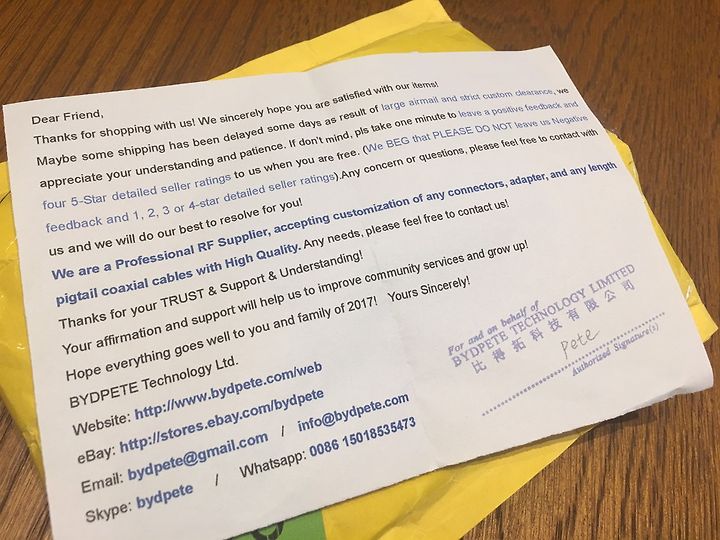 Dear Friend,
Thanks for shopping with us! We sincerely hope you are satisfied with our items!
Maybe some shipping has been delayed some days as result of large airmail and strict custom clearance, we
appreciate your understanding and patience. If don't mind, pls take one minute to leave a positive feedback and
four 5-Star detailed seller ratings to us when you are free. (We BEG that PLEASE DO NOT leave us Negative
feedback and 1, 2, 3 or 4-star detailed seller ratings).Any concern or questions, please feel free to contact with
us and we will do our best to resolve for you!
We are a Professional RF Supplier, accepting customization of any connectors, adapter, and any length
pigtail coaxial cables with High Quality. Any needs, please feel free to contact us!
Thanks for your TRUST & Support & Understanding!
Your affirmation and support will help us to improve community services and grow up!
Hope everything goes well to you and family of 2017! Yours Sincerely!
BYDPETE Technology Ltd.
Website: http://www.bydpete.com/web
eBay: http://stores.ebay.com/bydpete
Email: bydpete@gmail.com / info@bydpete.com
Skype: bydpete / Whatsapp: 0086 15018535473
For and on behalf of
BYDPETE TECHNOLOGY LIMITED
比得拓科技有限公司
Pete
Authorized Signature(s)